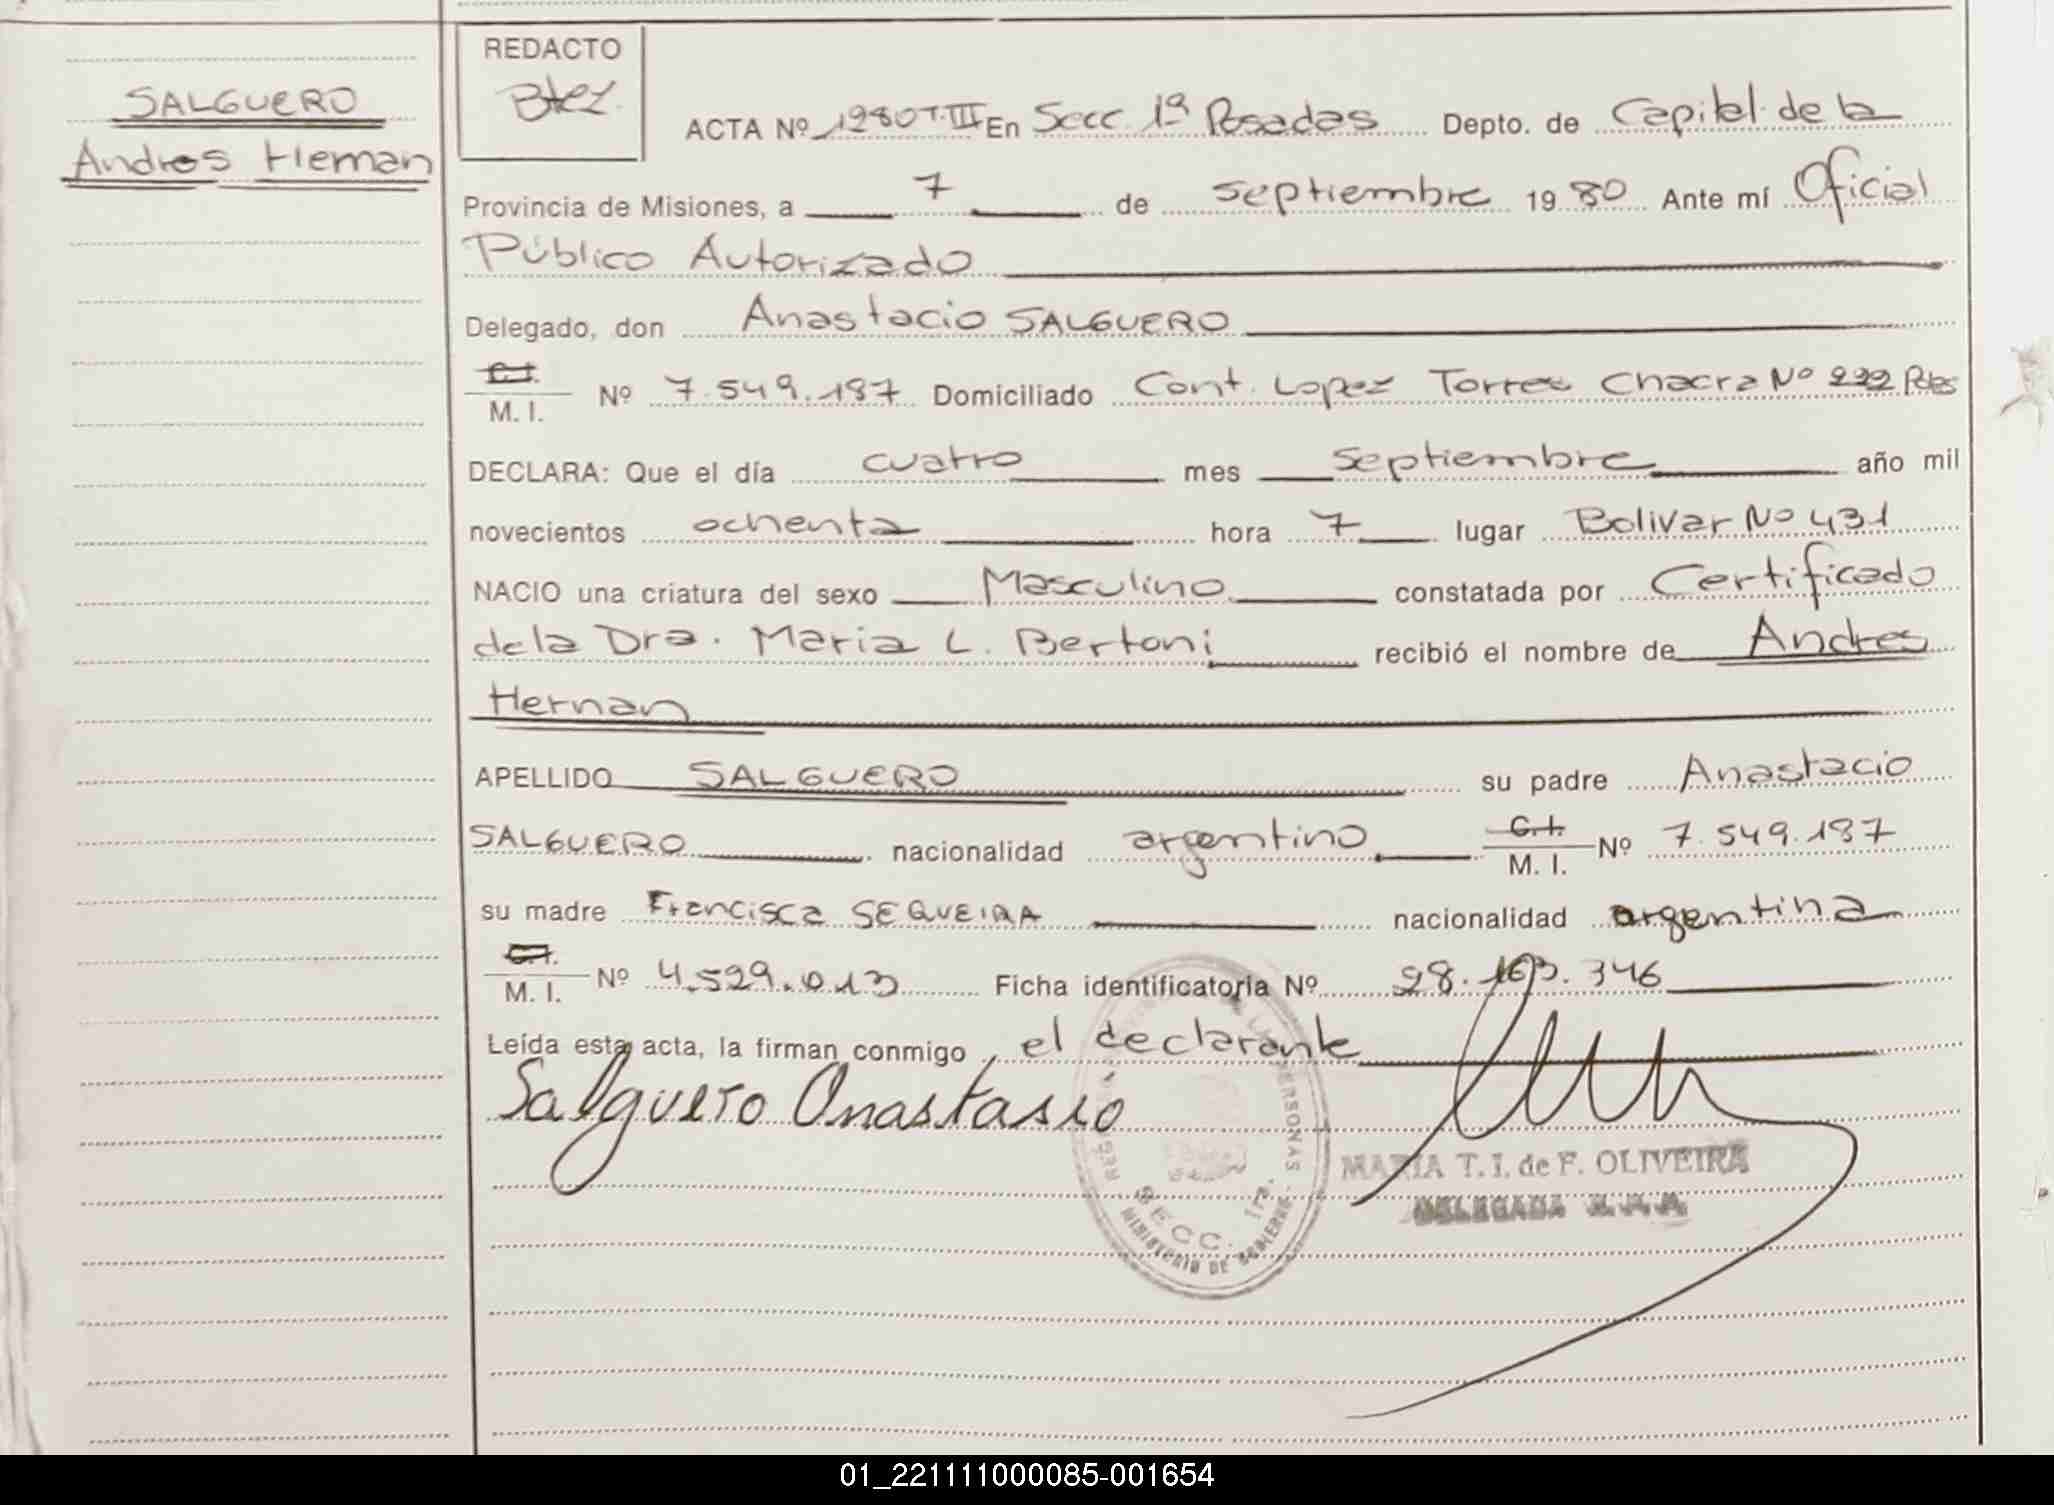 SALGUERO
Andres Hernan
REDACTO
ACTA Nº 1280 T. III En Secc. 1ª Posadas Depto. de Capital de la
Provincia de Misiones, a 7 de septiembre 1980 Ante mí Oficial
Público Autorizado
Delegado, don Anastacio SALGUERO
C.I.
M. I. Nº 7.549.187 Domiciliado Cont. Lopez Torres Chacra Nº 222 Pdas
DECLARA: Que el día cuatro mes septiembre año mil
novecientos ochenta hora 7 lugar Bolivar Nº 431
NACIO una criatura del sexo Masculino constatada por Certificado
de la Dra. Maria L. Bertoni recibió el nombre de Andres
Hernan
APELLIDO SALGUERO su padre Anastacio
SALGUERO nacionalidad argentino C.I. M. I. Nº 7.549.187
su madre Francisca SEQUEIRA nacionalidad argentina
C.I.
M. I. Nº 4.529.013 Ficha identificatoria Nº 28.163.346
Leída esta acta, la firman conmigo, el declarante
Salguero Anastasio
MARIA T. I. de F. OLIVEIRA
DELEGADA
PERSONAS
SECC. 1ra.
MINISTERIO DE GOBIERNO
01_221111000085-001654